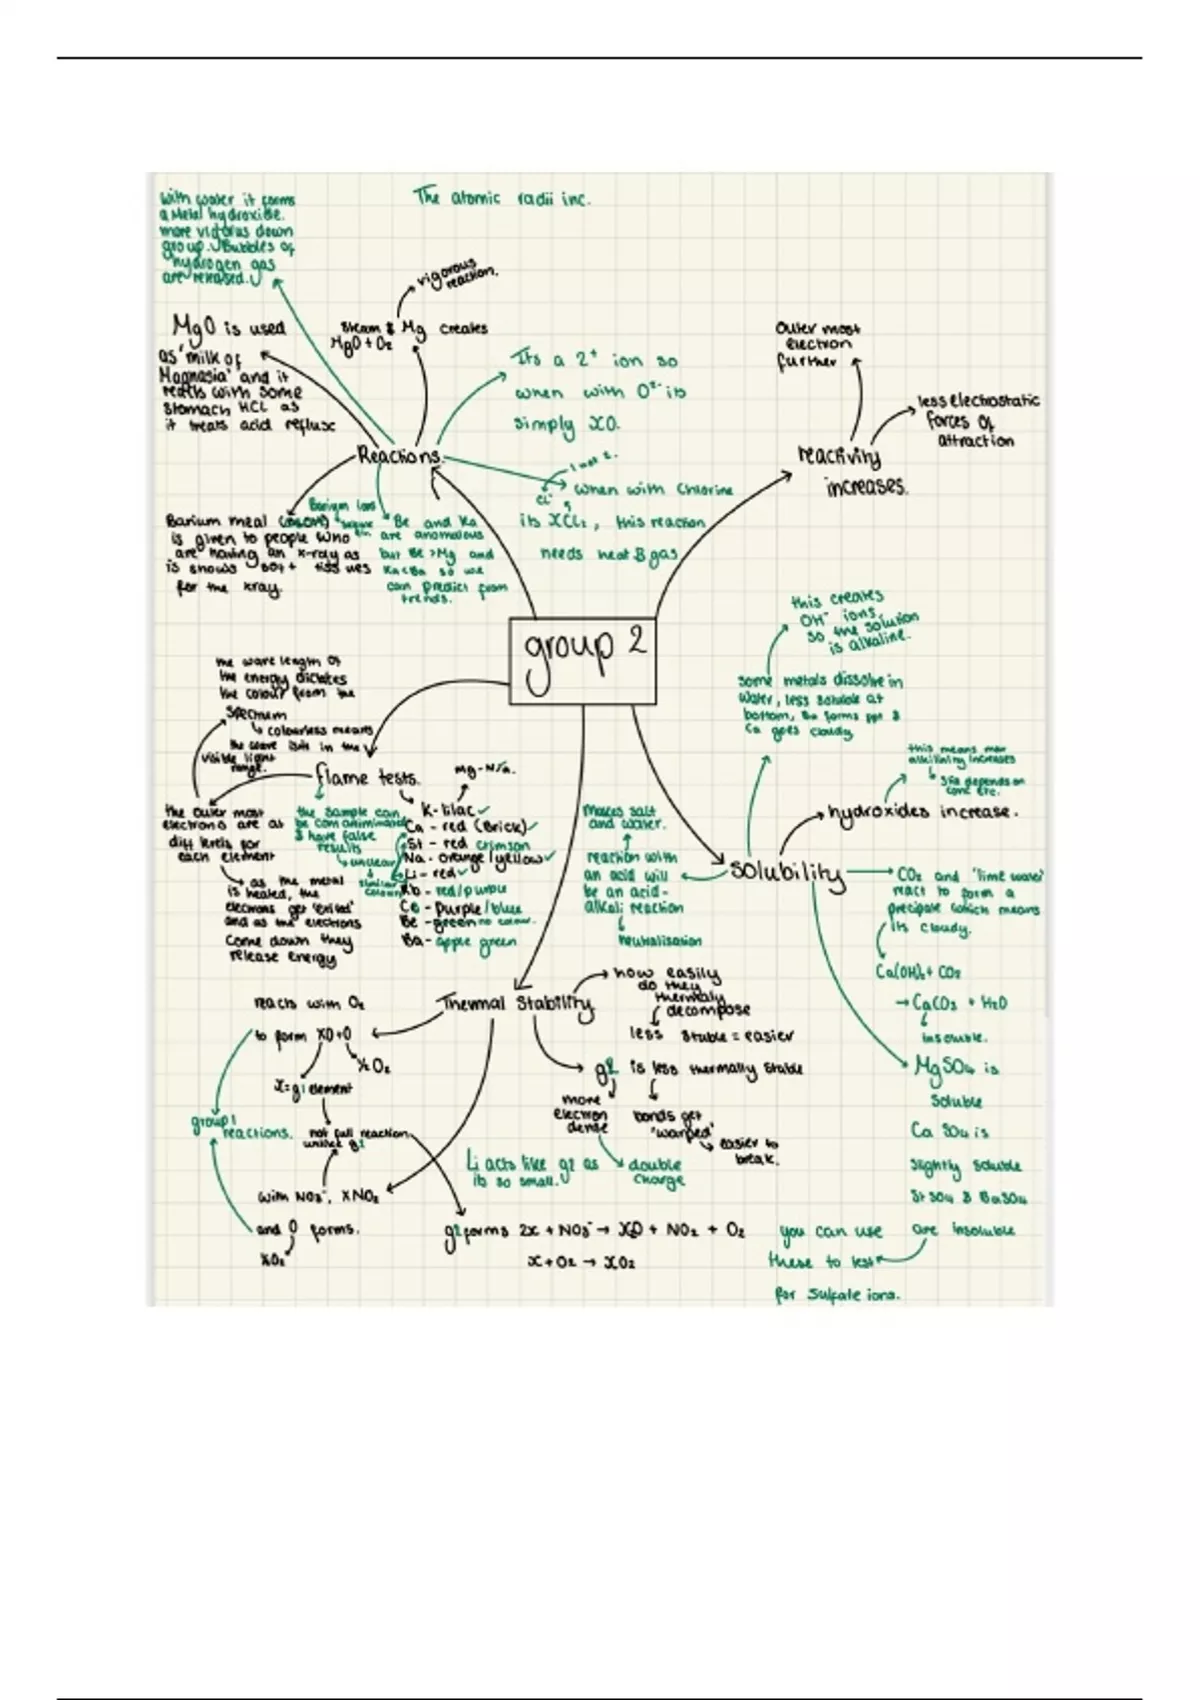 The atomic radii inc.
with water it forms
a Metal hydroxide.
more down
group. Bubbles of
hydrogen gas
are released.
vigorous
reaction.
MgO is used
as 'milk of
Magnesia' and it
reacts with some
stomach HCL as
it treats acid reflux
Steam & Mg creates
MgO + O₂
Its a 2⁺ ion so
when with O²⁻ its
simply XO.
Outer most
electron
further
less electrostatic
forces of
attraction
reactivity
increases.
Reactions.
1 not 2.
Cl⁻
when with Chlorine
its XCl₂, this reaction
needs heat & gas
Barium meal
is given to people who
are having an x-ray as
is shows soft tissues
for the xray.
Barium ions
Be and Ra
are anomalous
but Be > Mg and
so we
can predict from
trends.
group 2
this creates
OH⁻ ions,
so the solution
is alkaline.
some metals dissolve in
water, less soluble at
bottom, forms ppt &
Ca goes cloudy
this means
increases
depends on
conc etc.
hydroxides increase.
the wave length of
the energy dictates
the colour from the
spectrum
colourless means
the wave isnt in the
visible light
range.
flame tests.
Mg - N/a.
the outer most
electrons are at
diff levels for
each element
as the metal
is heated, the
electrons get 'exited'
and as the electrons
come down they
release energy
the sample can
be
& have false
results
unclear
similar
colours
K - lilac ✓
Ca - red (Brick) ✓
St - red crimson
Na - orange/yellow ✓
Li - red ✓
Rb - red/purple
Cs - purple/blue
Be - green no colour.
Ba - apple green
Makes salt
and water.
reaction with
an acid will
be an acid-
alkali reaction
neutralisation
Solubility
CO₂ and 'lime water'
react to form a
precipate which means
its cloudy.
Ca(OH)₂ + CO₂
→ CaCO₃ + H₂O
insoluble.
MgSO₄ is
soluble
CaSO₄ is
slightly soluble
StSO₄ & BaSO₄
are insoluble
you can use
these to test
for sulfate ions.
Thermal Stability
how easily
do they
thermaly
decompose
less stable = easier
g2 is less thermally stable
more
electron
dense
bonds get
'warped'
easier to
break.
double
charge
Li acts like g2 as
its so small.
reacts with O₂
to form XO+O
½O₂
X = g1 element
group 1
reactions.
not full reaction
unlike g2
with NO₃⁻, XNO₂
and O forms.
½O₂
g2 forms 2x + NO₃⁻ → XO + NO₂ + O₂
x + O₂ → XO₂